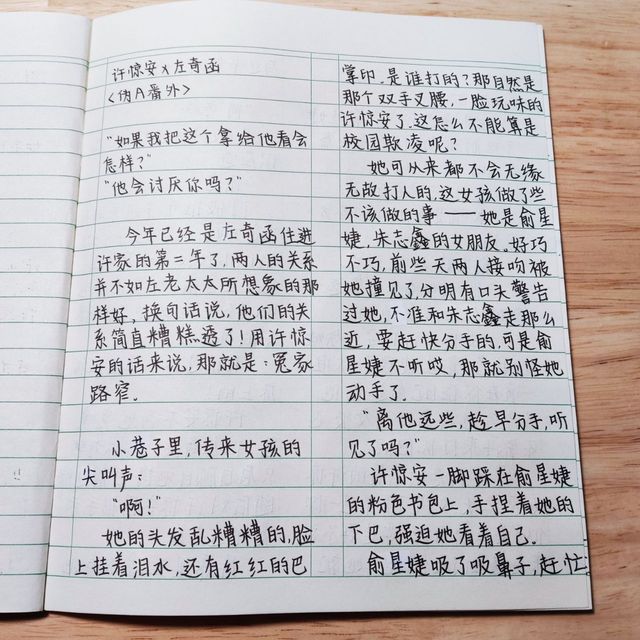 许惊安x左奇函
<伪A番外>
"如果我把这个拿给他看会
怎样?"
"他会讨厌你吗?"
今年已经是左奇函住进
许家的第二年了,两人的关系
并不如左老太太所想象的那
样好,换句话说,他们的关
系简直糟糕透了!用许惊
安的话来说,那就是:冤家
路窄.
小巷子里,传来女孩的
尖叫声:
"啊!"
她的头发乱糟糟的,脸
上挂着泪水,还有红红的巴
掌印.是谁打的?那自然是
那个双手叉腰,一脸玩味的
许惊安了.这怎么不能算是
校园欺凌呢?
她可从来都不会无缘
无故打人的,这女孩做了些
不该做的事——她是俞星
婕,朱志鑫的女朋友.好巧
不巧,前些天两人接吻被
她撞见了,分明有口头警告
过她,不准和朱志鑫走那么
近,要赶快分手的,可是俞
星婕不听哎,那就别怪她
动手了.
"离他远些,趁早分手,听
见了吗?"
许惊安一脚踩在俞星婕
的粉色书包上,手捏着她的
下巴,强迫她看着自己.
俞星婕吸了吸鼻子,赶忙